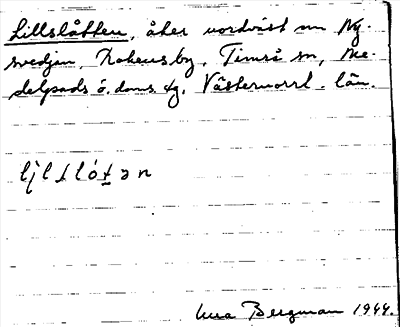 Lillslåtten, åker nordväst om Ny-
svedjan, by, Timrå sn, Me-
delpads ö. doms. tg, Västernorrl. län.
Bergman 1944.